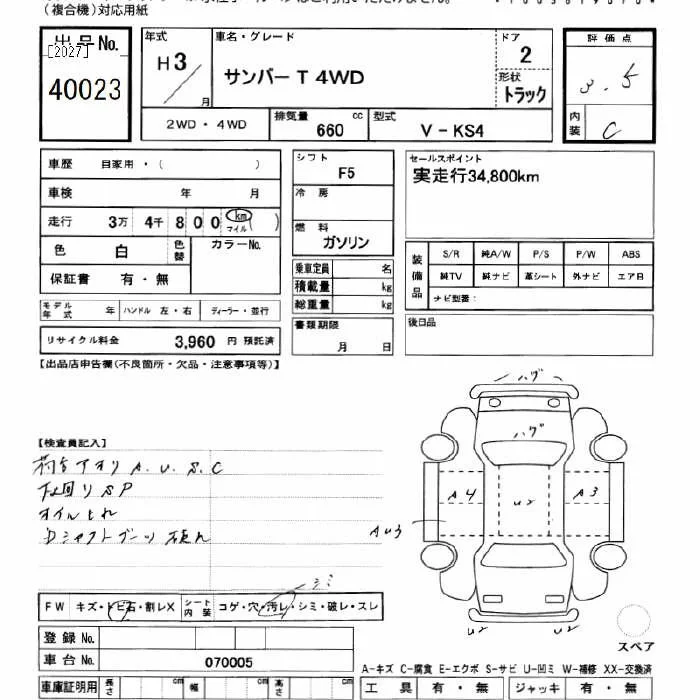 (複合機)対応用紙
出品 No.
[2027]
40023
年式
H3
月
車名・グレード
サンバー T 4WD
ドア
2
形状
トラック
評価点
3.5
内装
C
2WD・4WD
排気量
660
cc
型式
V-KS4
車歴 自家用・( )
車検 年 月
走行 3万 4千 800 km マイル ( )
色 白 色替 カラーNo.
保証書 有・無
モデル年式 年 ハンドル 左・右 ディーラー・並行
リサイクル料金 3,960 円 預託済
シフト
F5
冷房
燃料
ガソリン
乗車定員 名
積載量 kg
総重量 kg
書類期限
月 日
セールスポイント
実走行34,800km
装備品
S/R 純A/W P/S P/W ABS
純TV 純ナビ 革シート 外ナビ エアB
ナビ型番:
後日品
【出品店申告欄(不良箇所・欠品・注意事項等)】
【検査員記入】
荷台アオリ A.U.S.C
下回り SP
オイルもれ
Dシャフトブーツ破れ
ハゲ
ハゲ
A4
U2
A3
AU3
U2
U2
シミ
FW キズ・トビ石・割レX シート内装 コゲ・穴・汚レ・シミ・破レ・スレ
登録 No.
車台 No. 070005
車庫証明用 長さ cm 幅 cm 高さ cm
スペア
A-キズ C-腐食 E-エクボ S-サビ U-凹ミ W-補修 XX-交換済
工具 有・無 ジャッキ 有・無